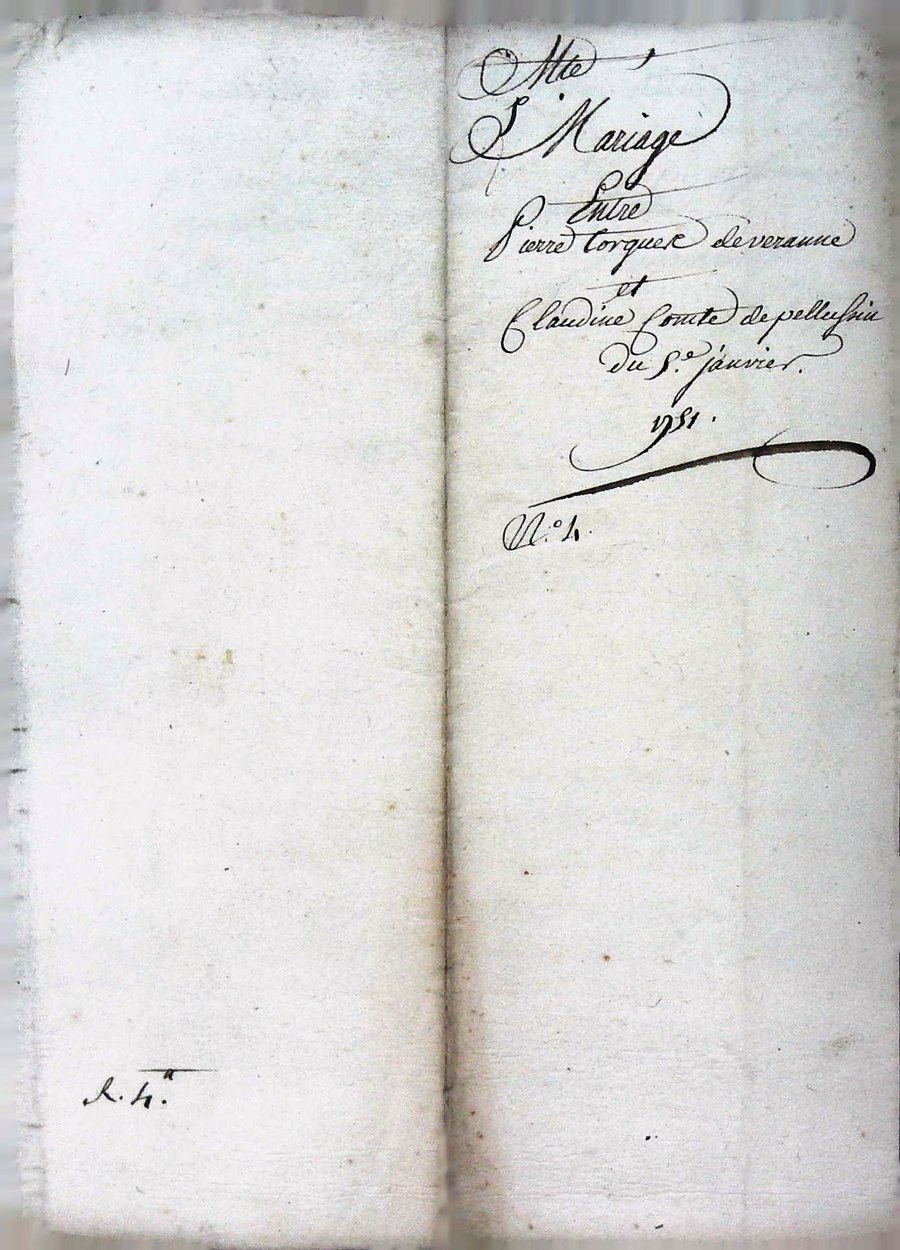 Acte
De Mariage
Entre
Pierre Torguet de veranne
et
Claudine Comte de pellussin
du 5.e janvier.
1751.
N.o 4.
R. 4.